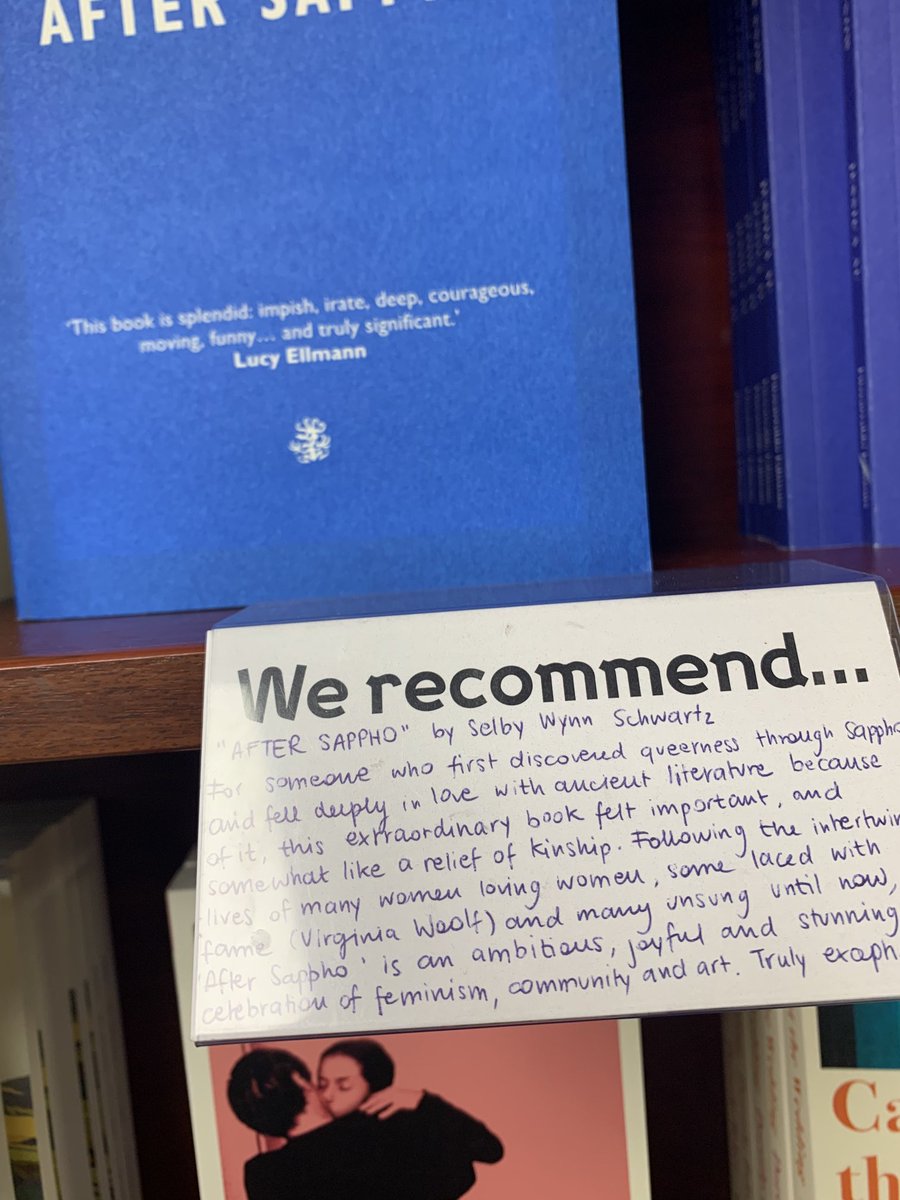 AFTER SAPPHO
'This book is splendid: impish, irate, deep, courageous,
moving, funny... and truly significant.'
Lucy Ellmann
We recommend...
"AFTER SAPPHO" by Selby Wynn Schwartz
For someone who first discovered queerness through Sappho
and fell deeply in love with ancient literature because
of it, this extraordinary book felt important, and
somewhat like a relief of kinship. Following the intertwin
lives of many women loving women, some laced with
fame (Virginia Woolf) and many unsung until now,
'After Sappho' is an ambitious, joyful and stunning
celebration of feminism, community and art. Truly
Ca
th